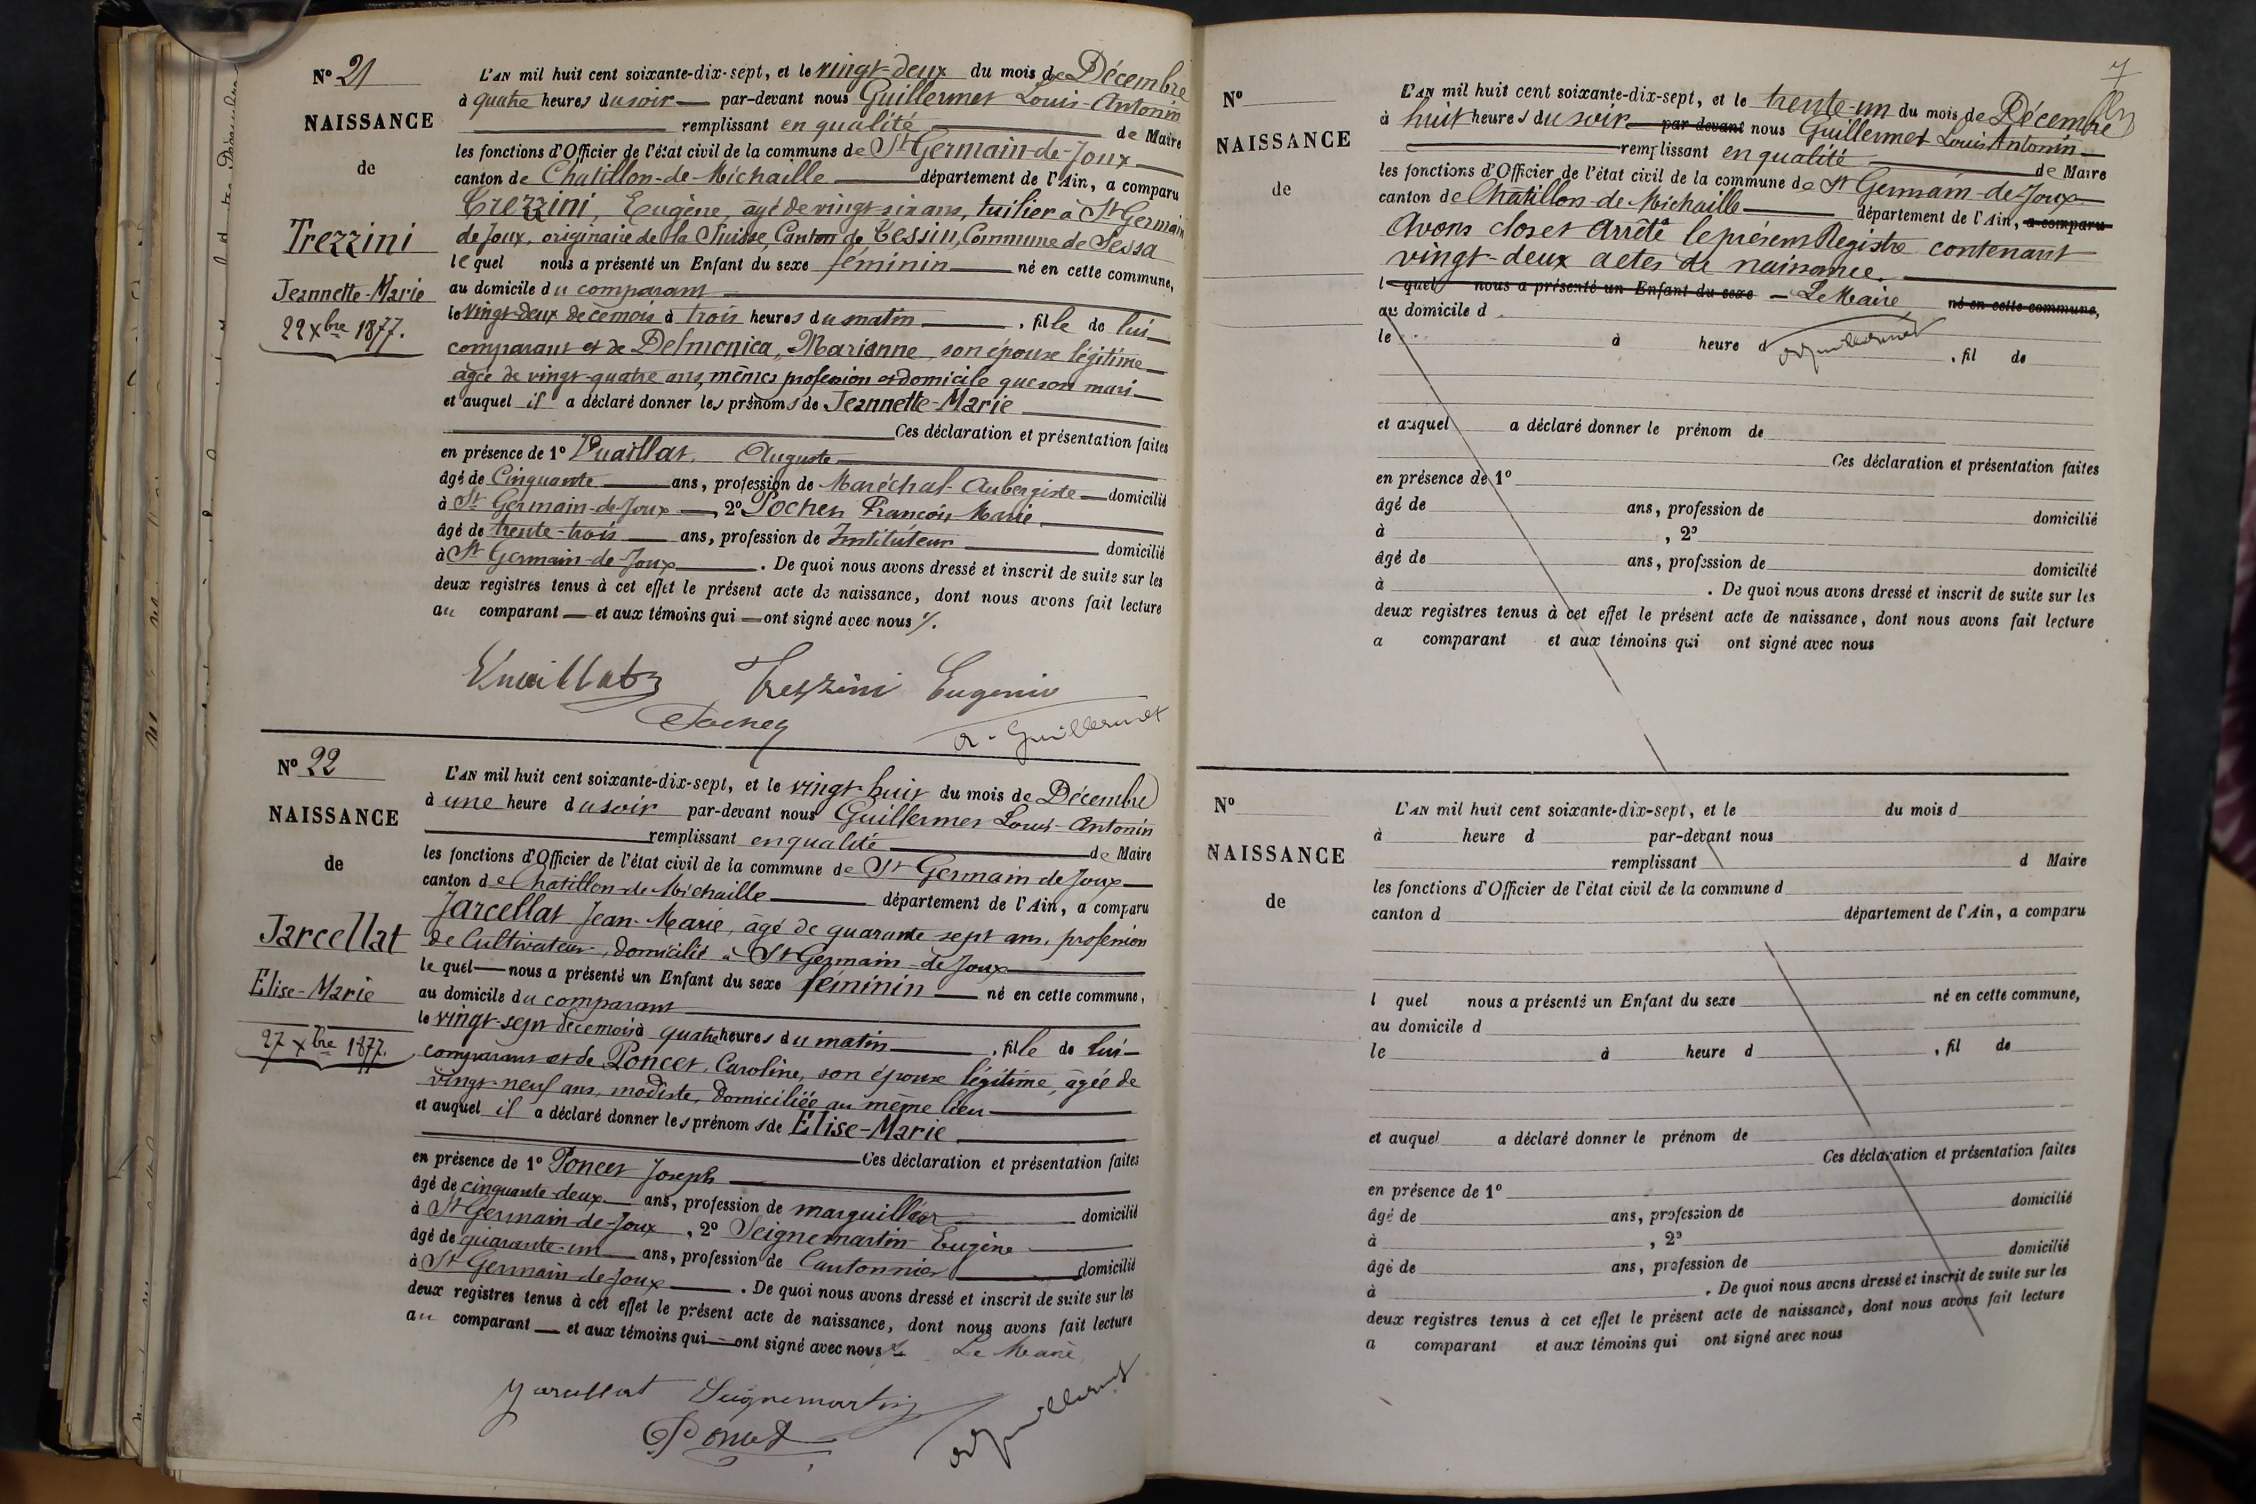 Nº 21
NAISSANCE
de
Trezzini
Jeannette-Marie
22 Xbre 1877.
L'AN mil huit cent soixante-dix-sept, et le vingt-deux du mois de Décembre
à quatre heures du soir par-devant nous Guillermet Louis-Antonin
remplissant en qualité de Maire
les fonctions d'Officier de l'état civil de la commune de St Germain-de-Joux
canton de Chatillon-de-Michaille département de l'Ain, a comparu
Trezzini, Eugène, âgé de vingt-six ans, tuilier à St Germain
de Joux, originaire de la Suisse, Canton de Tessin, Commune de Sessa
le quel nous a présenté un Enfant du sexe féminin né en cette commune,
au domicile du comparant
le vingt-deux de ce mois à trois heures du matin , fille de lui
comparant et de Delmonica, Marianne, son épouse légitime
âgée de vingt-quatre ans, mêmes profession et domicile que son mari
et auquel il a déclaré donner les prénoms de Jeannette-Marie
Ces déclaration et présentation faites
en présence de 1º Vuaillat, Auguste
âgé de Cinquante ans, profession de Maréchal-Aubergiste domicilié
à St Germain-de-Joux , 2º Pochet François Marie
âgé de trente-trois ans, profession de Instituteur domicilié
à St Germain-de-Joux . De quoi nous avons dressé et inscrit de suite sur les
deux registres tenus à cet effet le présent acte de naissance, dont nous avons fait lecture
au comparant et aux témoins qui ont signé avec nous ./.
Vuaillat Trezzini Eugenio
Pochet
A. Guillermet
Nº 22
NAISSANCE
de
Jarcellat
Elise-Marie
27 Xbre 1877.
L'AN mil huit cent soixante-dix-sept, et le vingt-huit du mois de Décembre
à une heure du soir par-devant nous Guillermet Louis-Antonin
remplissant en qualité de Maire
les fonctions d'Officier de l'état civil de la commune de St Germain de Joux
canton de Chatillon-de-Michaille département de l'Ain, a comparu
Jarcellat Jean-Marie, âgé de quarante sept ans, profession
de Cultivateur, domicilié à St Germain-de-Joux
le quel nous a présenté un Enfant du sexe féminin né en cette commune,
au domicile du comparant
le vingt-sept de ce mois à quatre heures du matin , fille de lui
comparant et de Poncet, Caroline, son épouse légitime, âgée de
vingt-neuf ans, modiste, domiciliée au même lieu
et auquel il a déclaré donner les prénoms de Elise-Marie
Ces déclaration et présentation faites
en présence de 1º Poncet Joseph
âgé de cinquante-deux ans, profession de marguillier domicilié
à St Germain-de-Joux , 2º Seignemartin Eugène
âgé de quarante-un ans, profession de Cantonnier domicilié
à St Germain-de-Joux . De quoi nous avons dressé et inscrit de suite sur les
deux registres tenus à cet effet le présent acte de naissance, dont nous avons fait lecture
au comparant et aux témoins qui ont signé avec nous Le Maire
Jarcellat Seignemartin
Poncet
A Guillermet
7
Nº
NAISSANCE
de
L'AN mil huit cent soixante-dix-sept, et le trente-un du mois de Décembre
à huit heures du soir par-devant nous Guillermet Louis Antonin
remplissant en qualité de Maire
les fonctions d'Officier de l'état civil de la commune de St Germain-de-Joux
canton de Châtillon-de-Michaille département de l'Ain, a comparu
Avons clos et Arrêté le présent Registre contenant
vingt-deux actes de naissance.
l quel nous a présenté un Enfant du sexe Le Maire né en cette commune,
au domicile d
le à heure d A Guillermet , fil de
et auquel a déclaré donner le prénom de
Ces déclaration et présentation faites
en présence de 1º
âgé de ans, profession de domicilié
à , 2º
âgé de ans, profession de domicilié
à . De quoi nous avons dressé et inscrit de suite sur les
deux registres tenus à cet effet le présent acte de naissance, dont nous avons fait lecture
a comparant et aux témoins qui ont signé avec nous
Nº
NAISSANCE
de
L'AN mil huit cent soixante-dix-sept, et le du mois d
à heure d par-devant nous
remplissant d Maire
les fonctions d'Officier de l'état civil de la commune d
canton d département de l'Ain, a comparu
l quel nous a présenté un Enfant du sexe né en cette commune,
au domicile d
le à heure d , fil de
et auquel a déclaré donner le prénom de
Ces déclaration et présentation faites
en présence de 1º
âgé de ans, profession de domicilié
à , 2º
âgé de ans, profession de domicilié
à . De quoi nous avons dressé et inscrit de suite sur les
deux registres tenus à cet effet le présent acte de naissance, dont nous avons fait lecture
a comparant et aux témoins qui ont signé avec nous